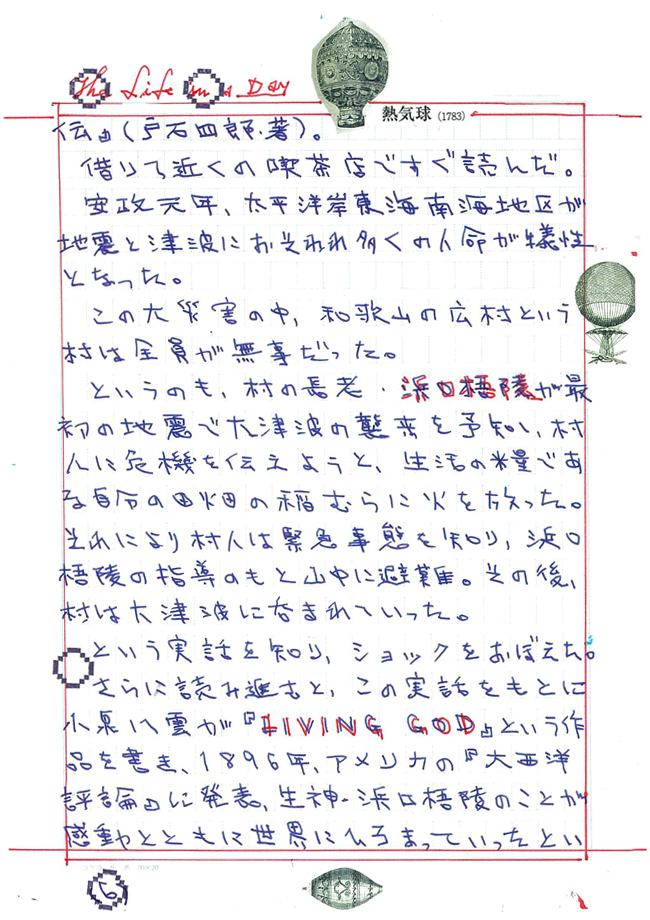 The Life in a Day
熱気球 (1783)
伝』(戸石四郎・著)。
借りて近くの喫茶店ですぐ読んだ。
安政元年、太平洋岸東海南海地区が
地震と津波におそわれ多くの人命が犠牲
となった。
この大災害の中、和歌山の広村という
村は全員が無事だった。
というのも、村の長老・浜口梧陵が最
初の地震で大津波の襲来を予知し、村
人に危機を伝えようと、生活の糧であ
る自分の田畑の稲むらに火を放った。
それにより村人は緊急事態を知り、浜口
梧陵の指導のもと山中に避難。その後、
村は大津波に呑まれていった。
という実話を知り、ショックをおぼえた。
さらに読み進むと、この実話をもとに
小泉八雲が『LIVING GOD』という作
品を書き、1896年、アメリカの『大西洋
評論』に発表。生神・浜口梧陵のことが
感動とともに世界にひろまっていったとい
6